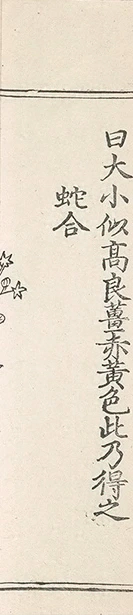 曰大小似髙良薑赤黃色此乃得之
蛇合